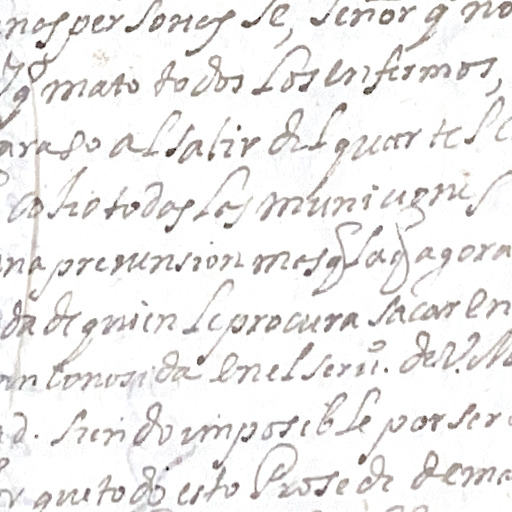 nas personas se, señor q no
q mato todos los enfermos,
al salir del quartel
cojio todas las municiones
na prevension mas q la q agora
da de quien le procura sacar en
en el serv.o de V. M
d. siendo imposible por ser
que todo esto Prosede de ma